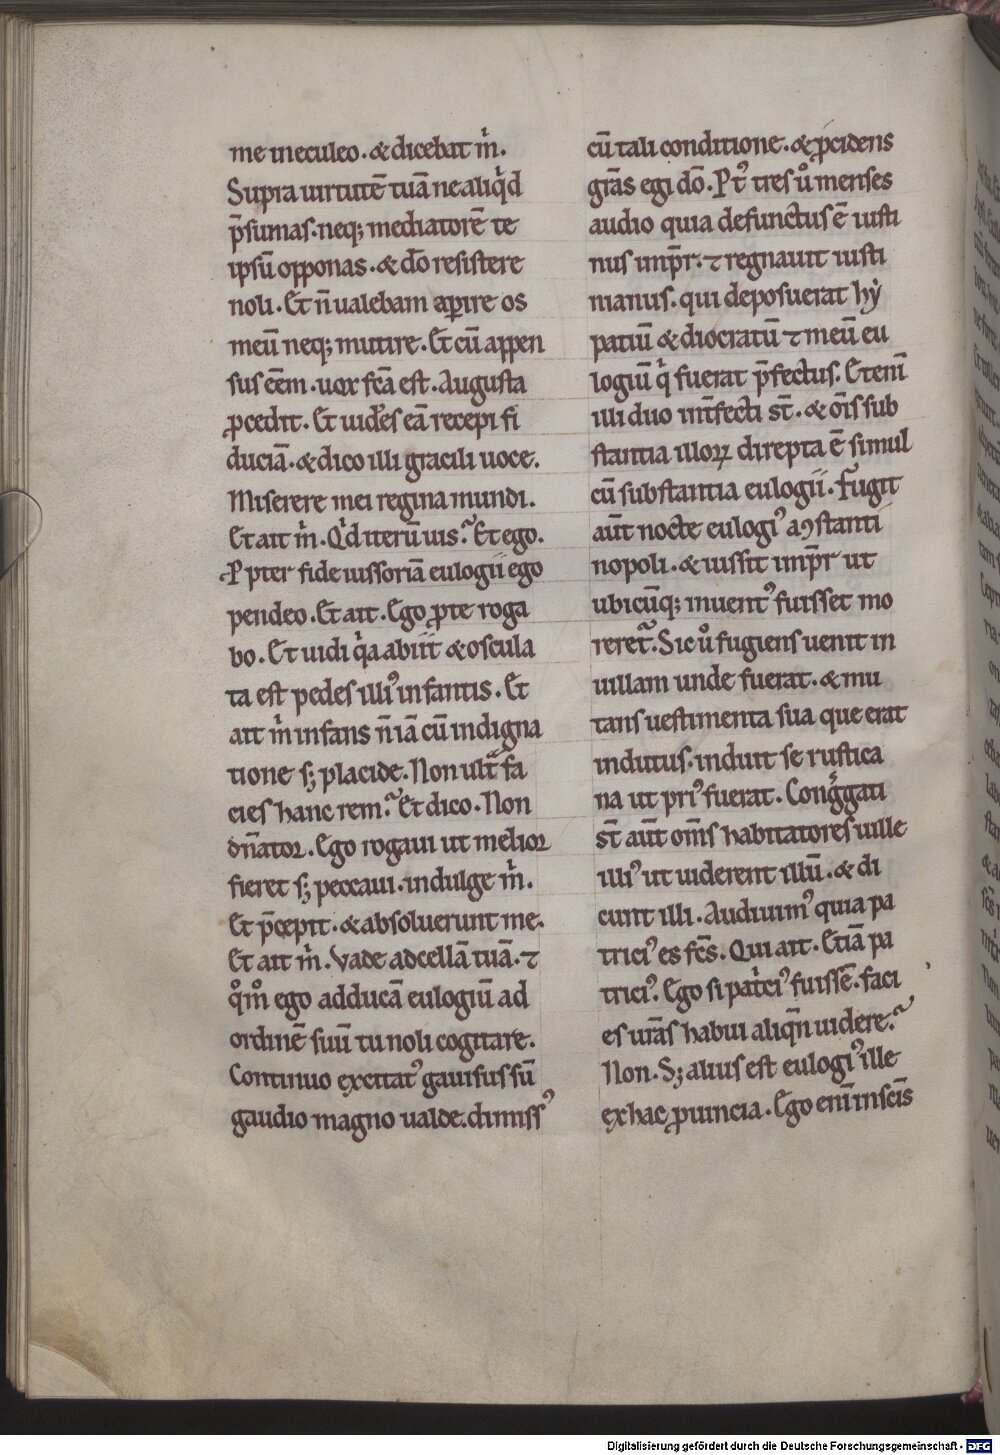 me ineculeo. & dicebat m̍.
Supra uirtutē tuā ne aliq̍d
p̄sumas. neq; mediatorē te
ipsū opponas. & dō resistere
noli. Et n̄ ualebam aꝑire os
meū neq; mutire. Et cū appen
sus eēm. uox fcā est. Augusta
ꝓcedit. Et uidēs eā recepi fi
duciā. & dico illi gracili uoce.
Miserere mei regina mundi.
Et ait m̍. Q̍d iterū uis? Et ego.
Ppter fide iussoriā eulogii ego
pendeo. Et ait. Ego ꝓ te roga
bo. Et uidi q̍a abiit & oscula
ta est pedes illiꝰ infantis. Et
ait m̍ infans n̄ iā cū indigna
tione s; placide. Non ultͣ fa
cies hanc rem? Et dico. Non
dn̄ator. Ego rogaui ut melior
fieret s; peccaui. indulge m̍.
Et p̄cepit. & absoluerunt me.
Et ait m̍. Vade ad cellā tuā. ⁊
q̊m̊ ego adducā eulogiū ad
ordinē suū tu noli cogitare.
Continuo excitatꝰ gauisus sū
gaudio magno ualde. dimissꝰ
cū tali conditione. & ꝓcidens
grās egi dō. Ptꝰ tres ů menses
audio quia defunctus ē iusti
nus imp̄r. ⁊ regnauit iusti
nianus. qui deposuerat hẏ
patiū & diocratū ⁊ meū eu
logiū q̍ fuerat p̄fectus. Etenī
illi duo int̄fecti st̄. & oīs sub
stantia illoꝝ direpta ē simul
cū substantia eulogii. Fugit
aūt nocte eulogiꝰ a ꝯstanti
nopoli. & iussit imp̄r ut
ubicūq; inuentꝰ fuisset mo
reret᷑. Sic ů fugiens uenit in
uillam unde fuerat. & mu
tans uestimenta sua que erat
indutus. induit se rustica
na ut priꝰ fuerat. Cong̍gati
st̄ aūt om̄s habitatores uille
illiꝰ ut uiderent illū. & di
cunt illi. Audiuimꝰ quia pa
triciꝰ es fc̄s. Qui ait. Etiā pa
triciꝰ. Ego si pat̍ciꝰ fuissē. faci
es ur̄as habui aliqn̄ uidere?
Non. S; alius est eulogiꝰ ille
ex hac ꝓuincia. Ego enī in scīs
Digitalisierung gefördert durch die Deutsche Forschungsgemeinschaft - DFG